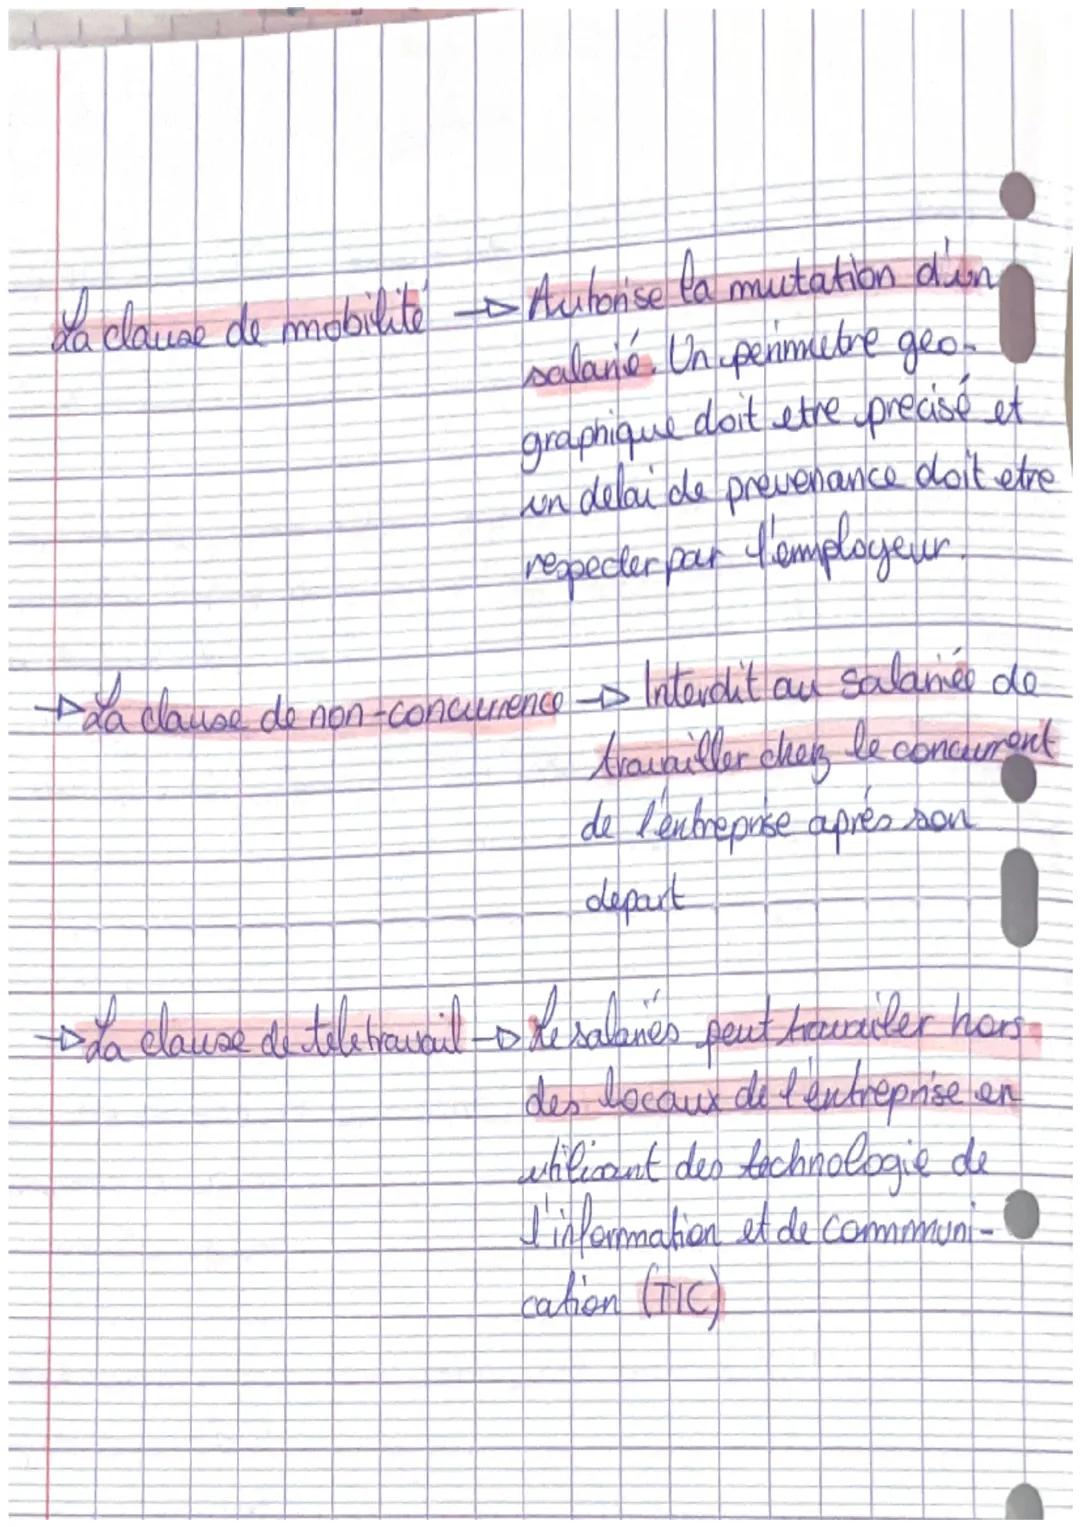 La clause de mobilité → Autorise la mutation d'un
salarié. Un perimetre geo-
graphique doit etre precisé et
un delai de prevenance doit etre
respecter par l'employeur.
→ La clause de non-concurrence → Interdit au salariée de
travailler chez le concurrent
de l'entreprise aprés son
depart
→ La clause de teletravail → Le salariés peut travailler hors
des locaux de l'entreprise en
utilisant des technologie de
l'information et de communi-
cation (TIC)